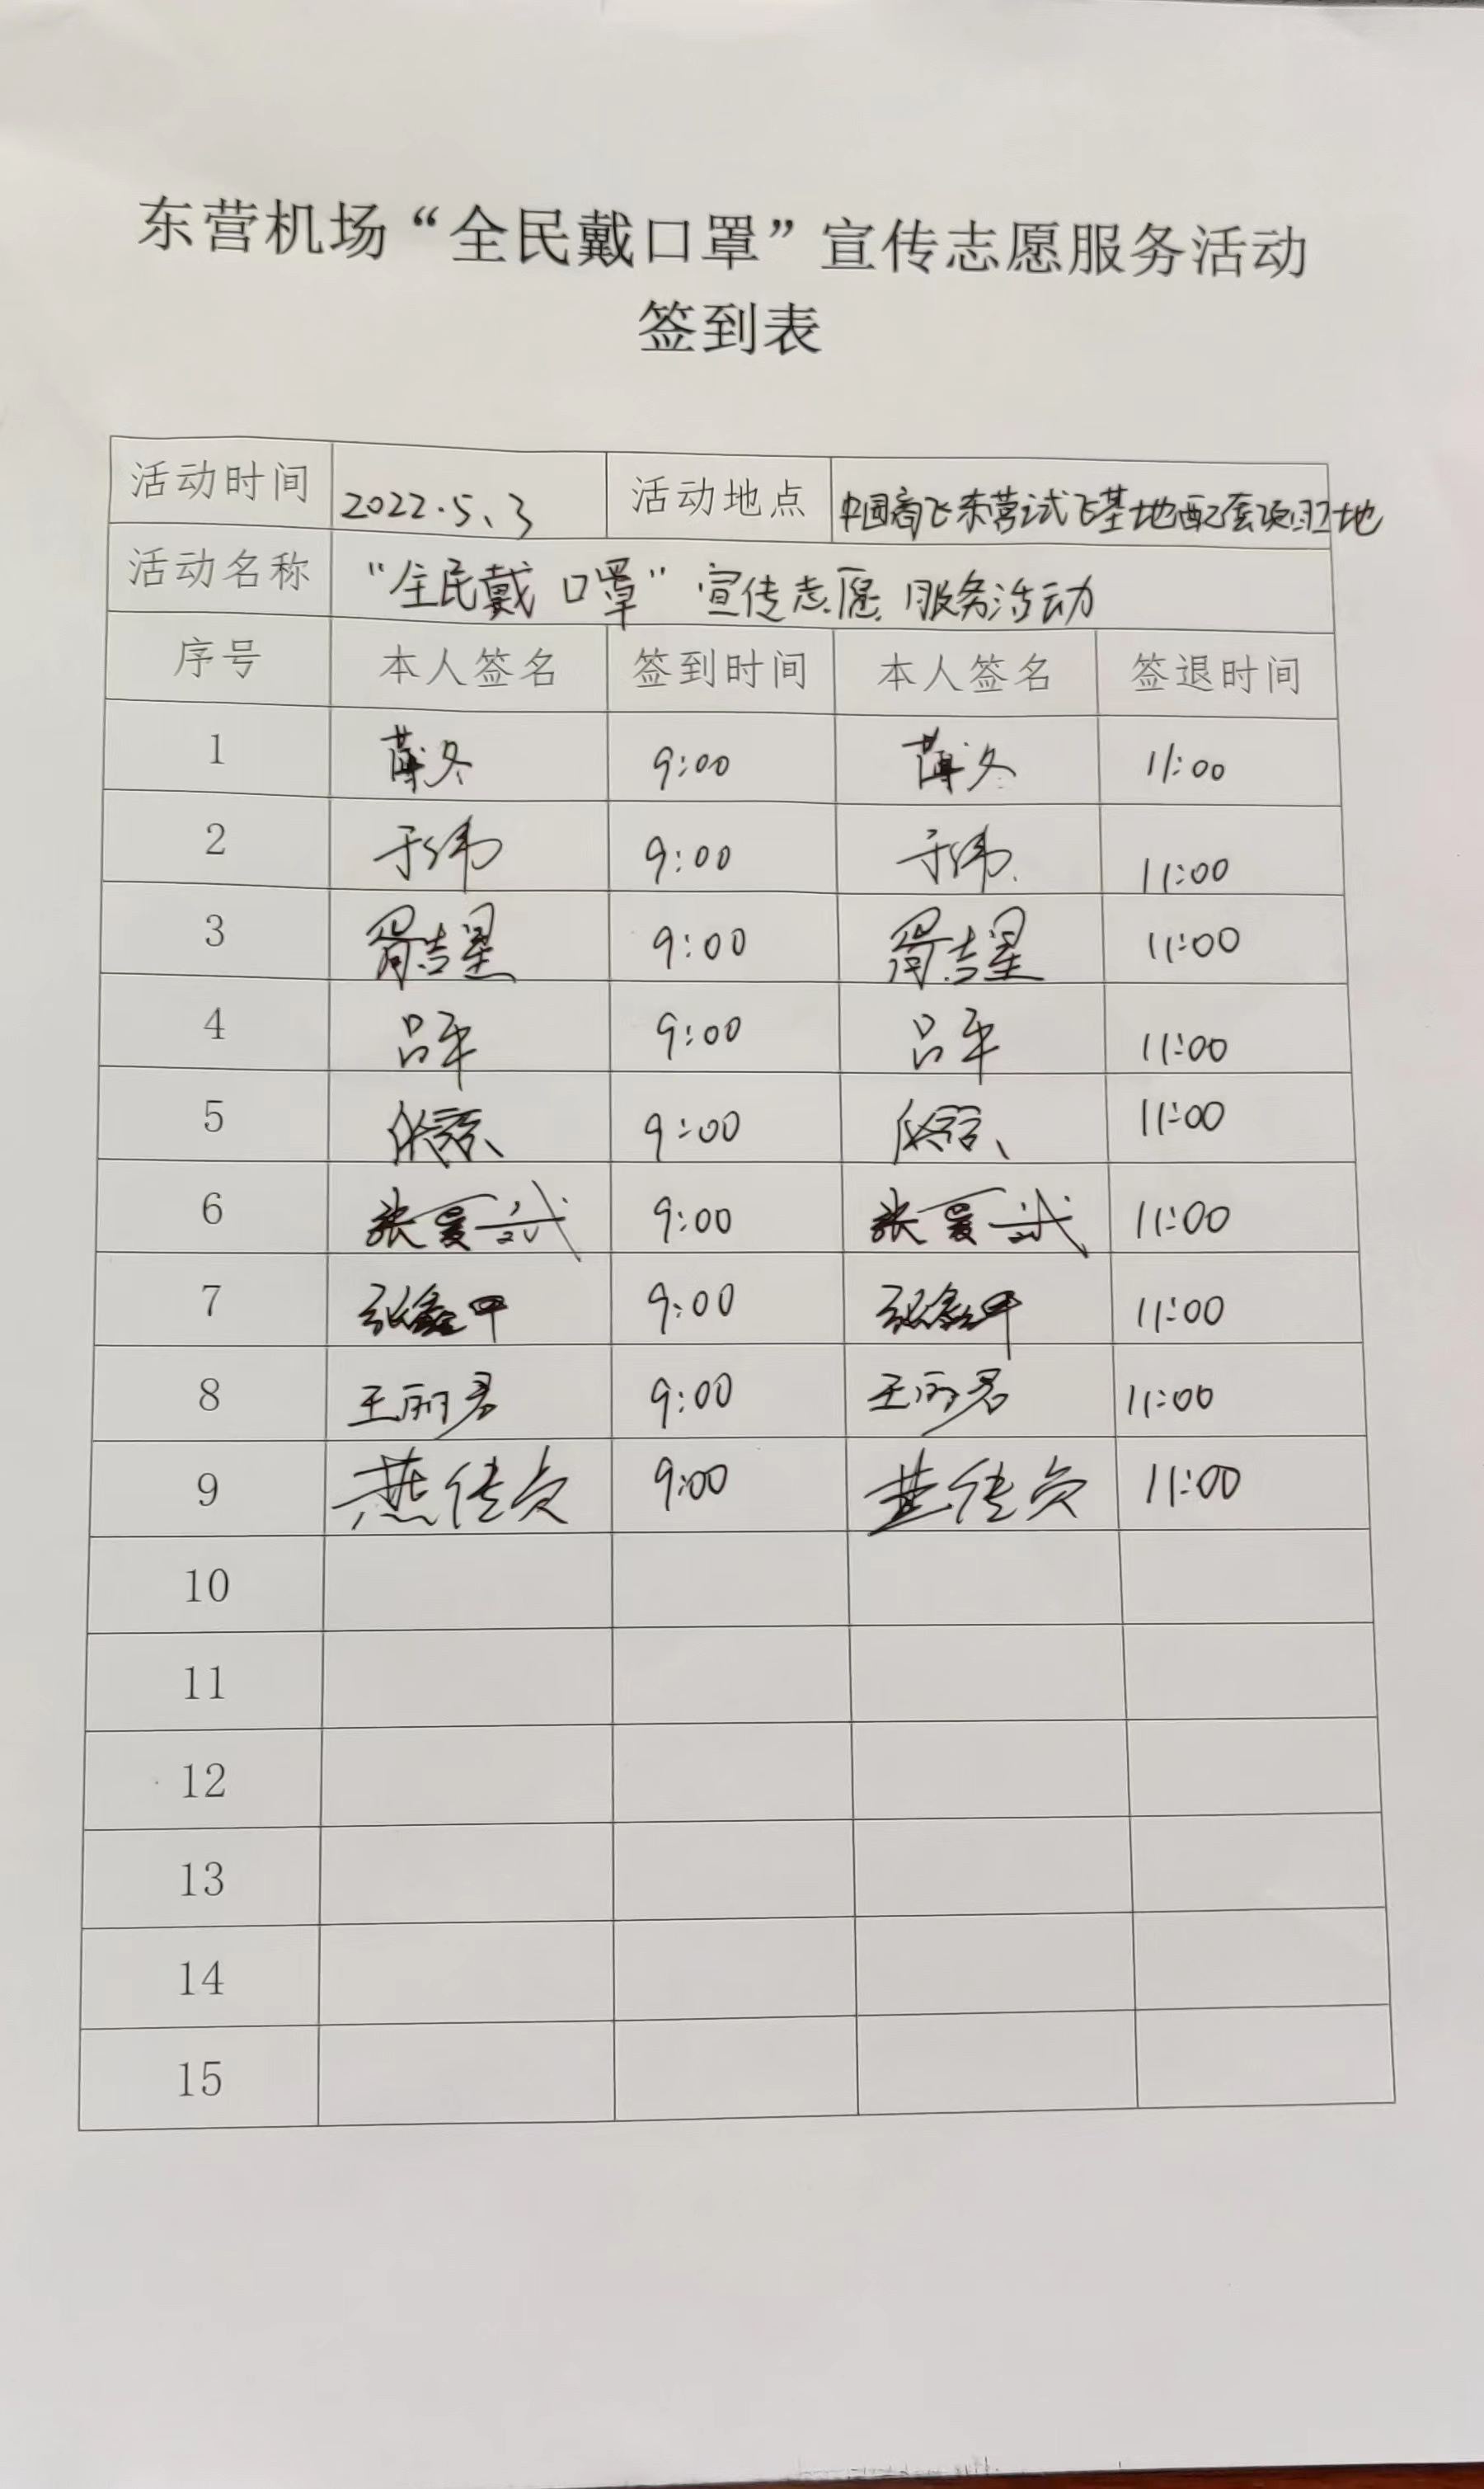 东营机场“全民戴口罩”宣传志愿服务活动
签到表
活动时间 2022.5、3 活动地点 中国商飞东营试飞基地配套项目工地
活动名称 “全民戴口罩”宣传志愿服务活动
序号 本人签名 签到时间 本人签名 签退时间
1 薄冬 9:00 薄冬 11:00
2 于纬 9:00 于纬 11:00
3 胥吉星 9:00 胥吉星 11:00
4 吕平 9:00 吕平 11:00
5 9:00 11:00
6 张夏斌 9:00 张夏斌 11:00
7 张鑫甲 9:00 张鑫甲 11:00
8 王丽君 9:00 王丽君 11:00
9 燕传贞 9:00 燕传贞 11:00
10
11
12
13
14
15